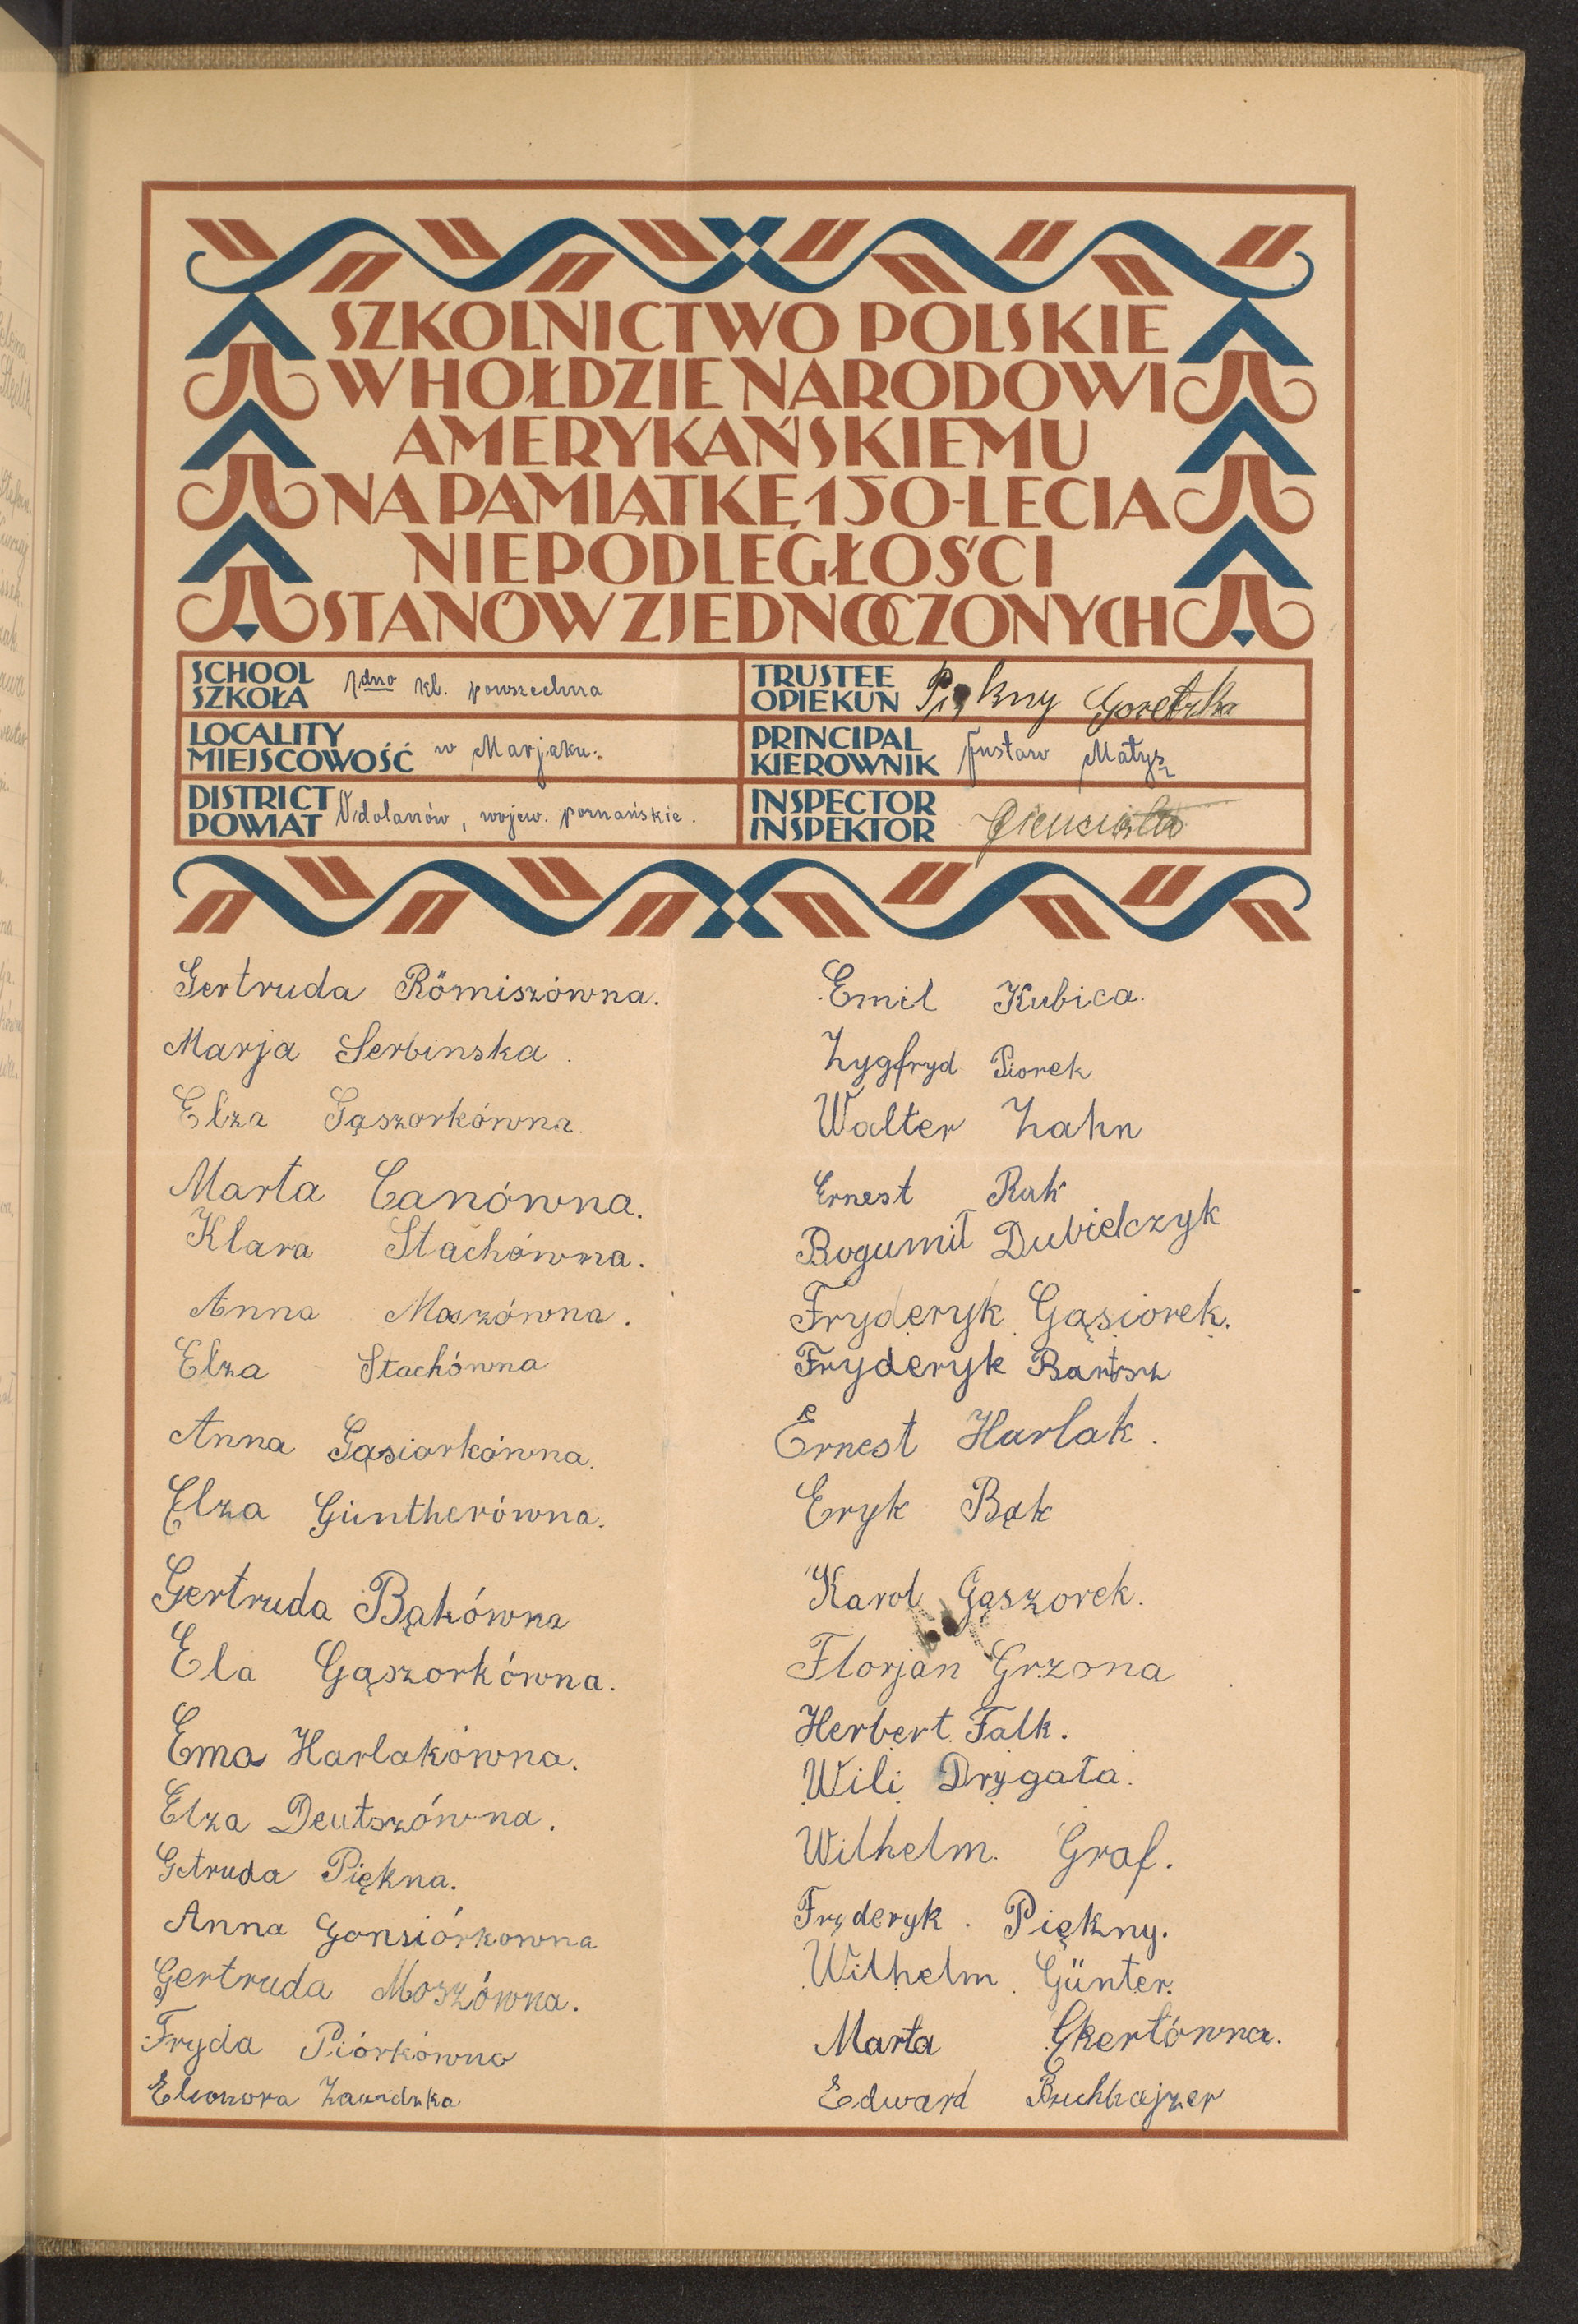 SZKOLNICTWO POLSKIE
W HOŁDZIE NARODOWI
AMERYKAŃSKIEMU
NA PAMIĄTKĘ 150-LECIA
NIEPODLEGŁOŚCI
STANÓW ZJEDNOCZONYCH
SCHOOL
SZKOŁA 1dno kl. powszechna
LOCALITY
MIEJSCOWOŚĆ w Marjaku.
DISTRICT
POWIAT Odolanów, wojew. poznańskie.
TRUSTEE
OPIEKUN Piękny Goretzka
PRINCIPAL
KIEROWNIK Gustaw Matysz
INSPECTOR
INSPEKTOR
Gertruda Römiszówna.
Marja Serbinska.
Elza Gąszorkówna.
Marta Canówna.
Klara Stachówna.
Anna Moszówna.
Elza Stachówna
Anna Gąsiorkówna.
Elza Güntherówna.
Gertruda Bąkówna
Ela Gąszorkówna.
Ema Harlakówna.
Elza Deutszówna.
Getruda Piękna.
Anna Gonsiórkowna
Gertruda Moszówna.
Fryda Piórkówna
Eleonora Zawidzka
Emil Kubica.
Zygfryd Piorek
Walter Zahn
Ernest Rak
Bogumił Dubielczyk
Fryderyk Gąsiorek.
Fryderyk Bartsz
Ernest Harlak.
Eryk Bąk
Karol Gąszorek.
Florjan Grzona
Herbert Falk.
Wili Drygała.
Wilhelm. Graf.
Fryderyk. Piękny.
Wilhelm. Günter.
Marta Ekertówna.
Edward Buchhajzer